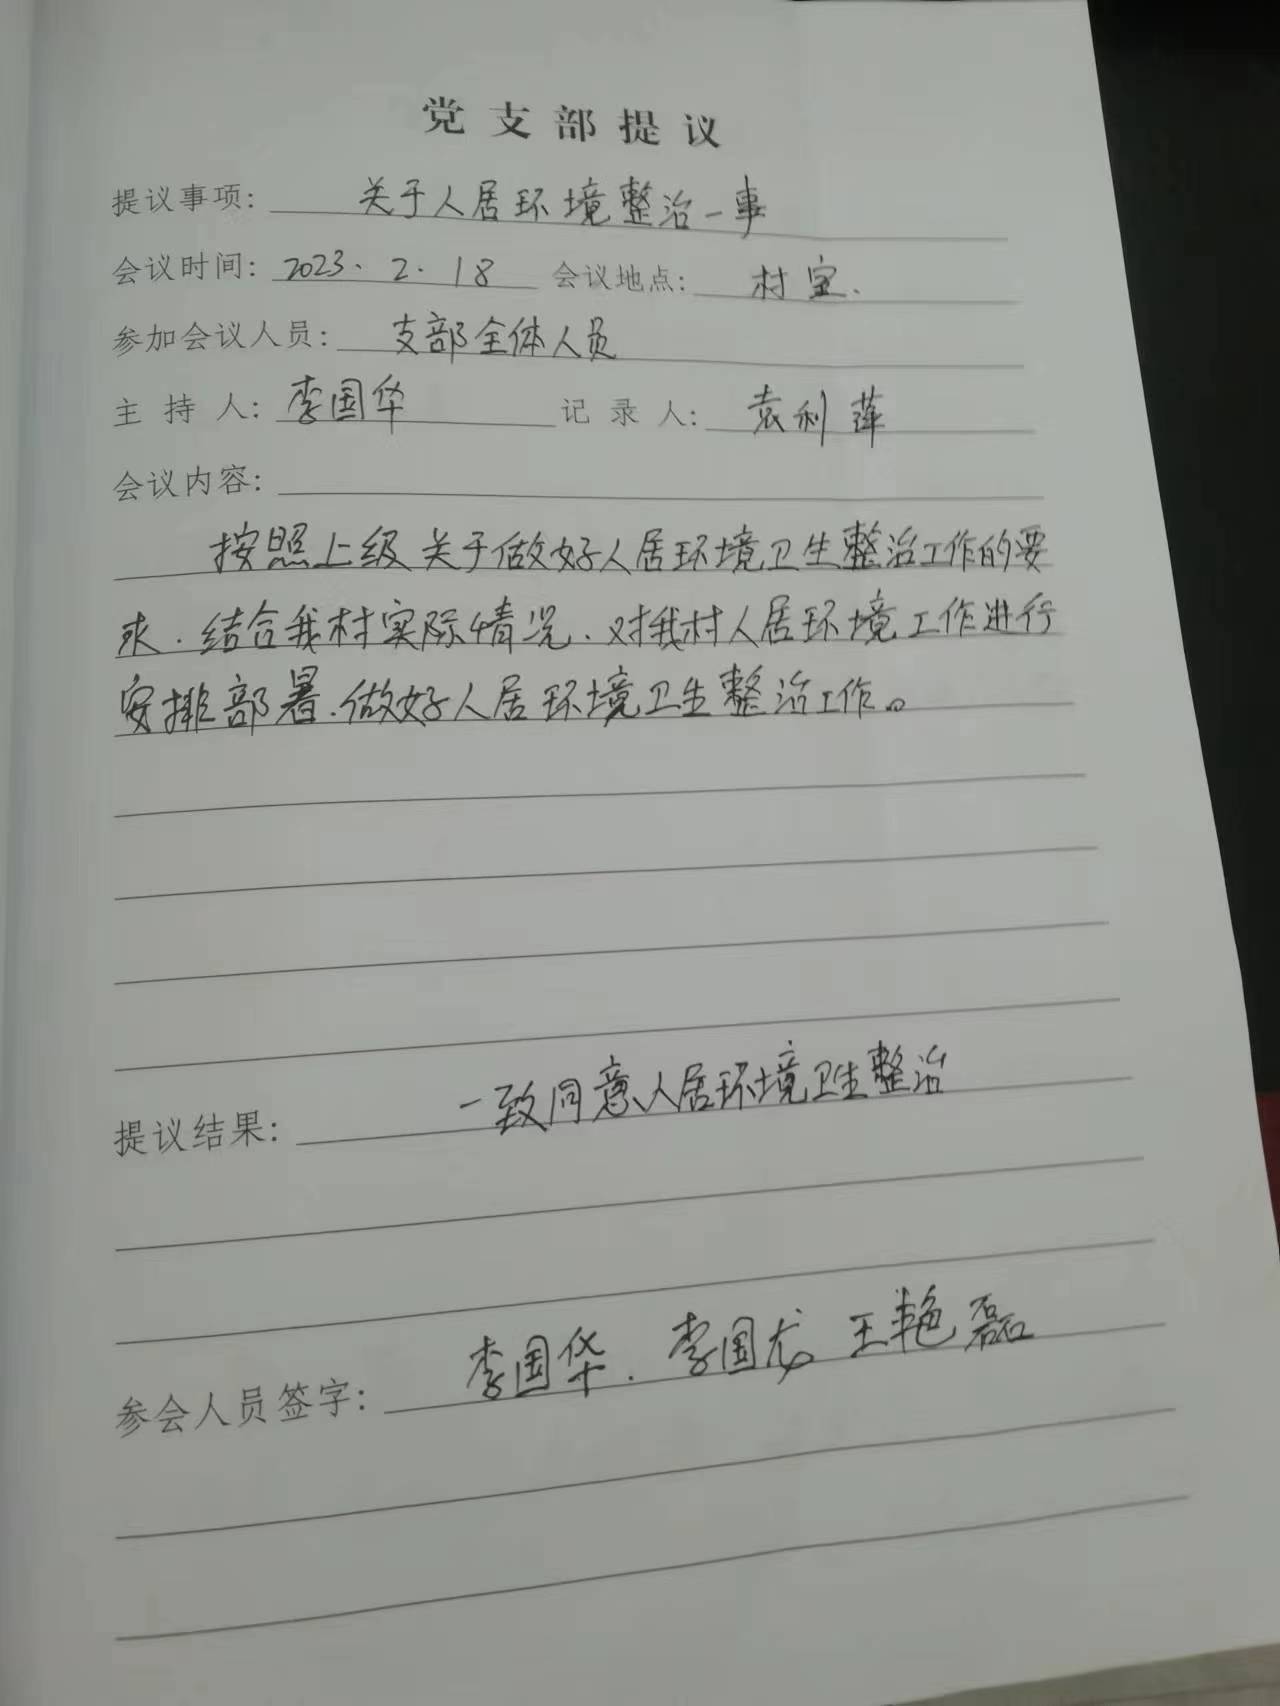 党支部提议
提议事项: 关于人居环境整治一事
会议时间: 2023.2.18 会议地点: 村室.
参加会议人员: 支部全体人员
主持人: 李国华 记录人: 袁利萍
会议内容:
按照上级关于做好人居环境卫生整治工作的要
求.结合我村实际情况.对我村人居环境工作进行
安排部署.做好人居环境卫生整治工作。
提议结果: 一致同意人居环境卫生整治
参会人员签字: 李国华. 李国龙 王艳磊